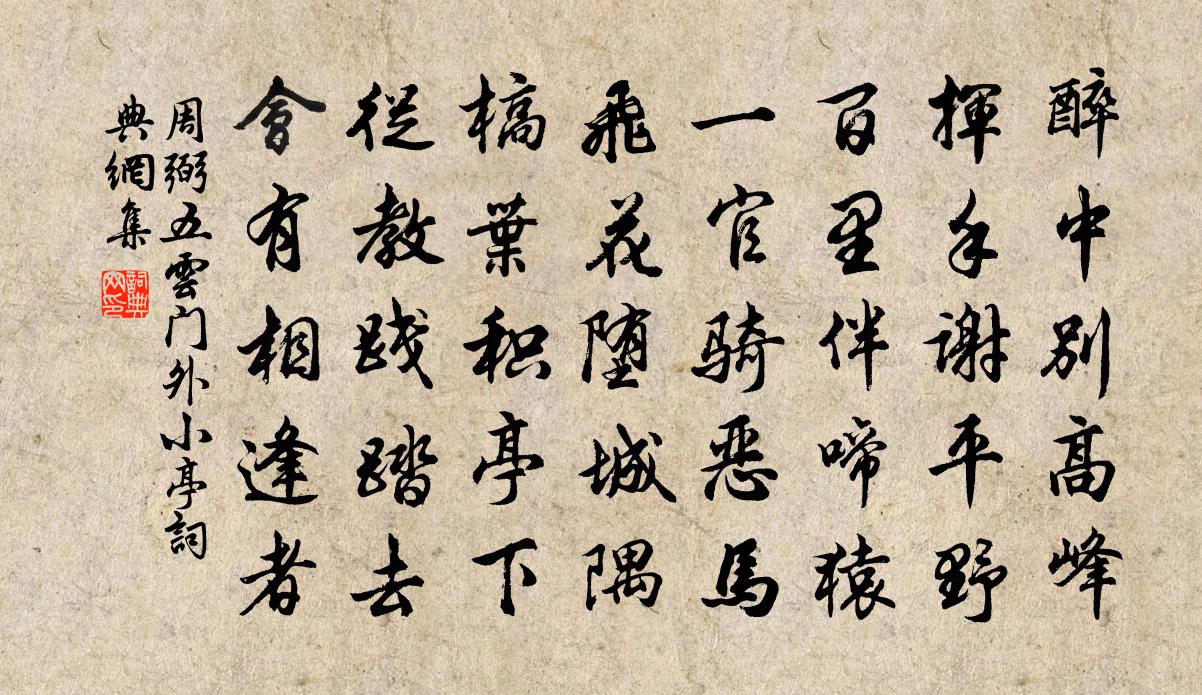 醉中別高峰
揮手謝平野
百里伴啼猿
一官騎惡馬
飛花墮城隅
槁葉積亭下
從教踐踏去
會有相逢者
周弼五雲门外小亭詞
典網集
詞典網印